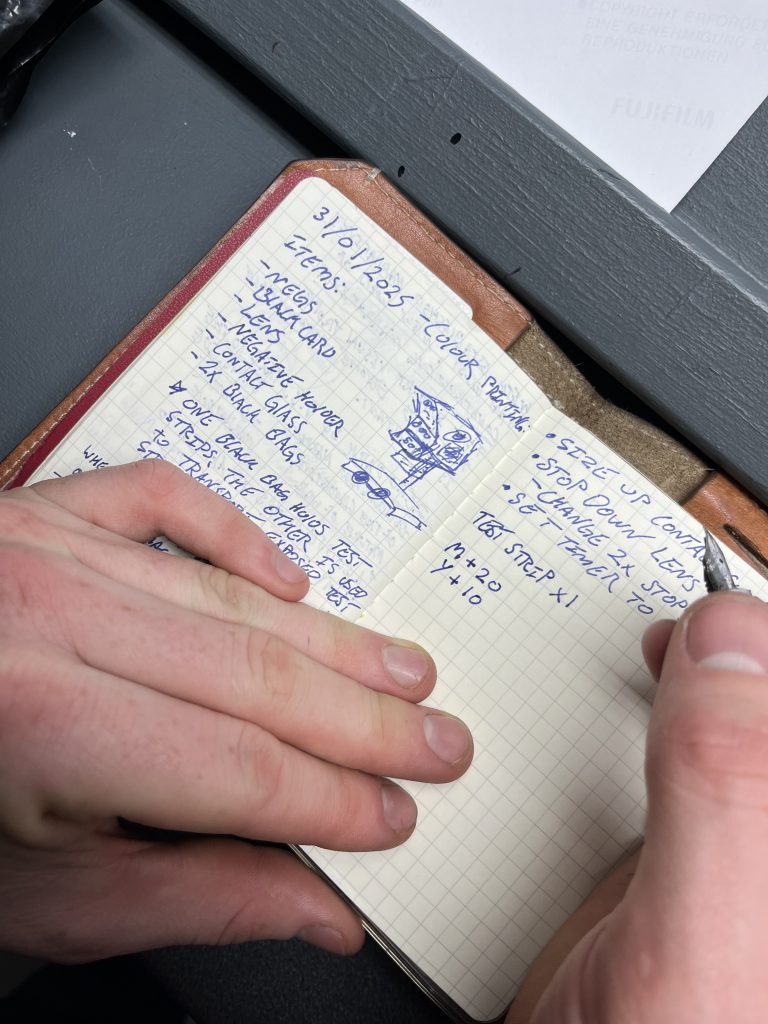 COPYRIGHT ERFORDE
EINE GENEHMIGUNG
REPRODUKTIONEN
FUJIFILM
31/01/2025 - COLOUR PRINTING.
ITEMS:
- NEGS
- BLACK CARD
- LENS
- NEGATIVE HOLDER
- CONTACT GLASS
- 2X BLACK BAGS
ONE BLACK BAG HOLDS TEST
STRIPS THE OTHER IS USED
TO TRANSPORT EXPOSED TEST
WHE
• SIZE UP CONTA
• STOP DOWN LENS
- CHANGE 2X STOP
• SET TIMER TO
TEST STRIP X1
M+20
Y+10